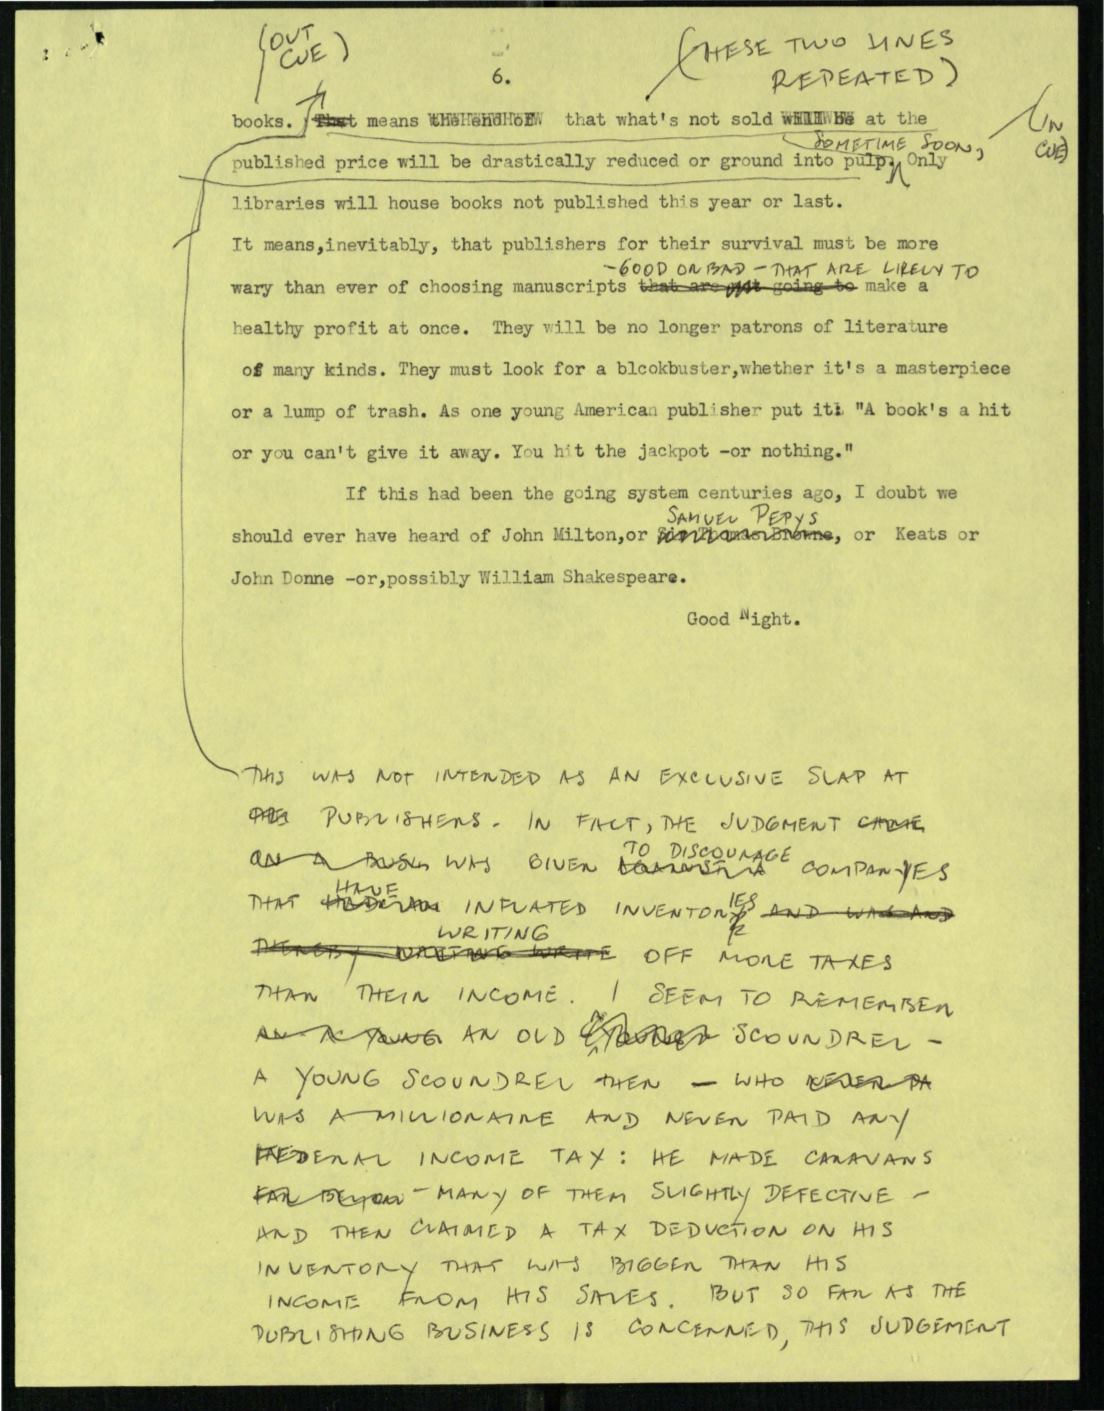 (OUT
CUE)
(THESE TWO LINES
REPEATED)
6.
books. That means the end of that what's not sold will be at the
(IN
CUE)
SOMETIME SOON,
published price will be drastically reduced or ground into pulp. Only
libraries will house books not published this year or last.
It means,inevitably, that publishers for their survival must be more
-GOOD OR BAD - THAT ARE LIKELY TO
wary than ever of choosing manuscripts that are not going to make a
healthy profit at once. They will be no longer patrons of literature
of many kinds. They must look for a blcokbuster,whether it's a masterpiece
or a lump of trash. As one young American publisher put it: "A book's a hit
or you can't give it away. You hit the jackpot -or nothing."
If this had been the going system centuries ago, I doubt we
SAMUEL PEPYS
should ever have heard of John Milton,or Sir Thomas Browne, or Keats or
John Donne -or,possibly William Shakespeare.
Good Night.
THIS WAS NOT INTENDED AS AN EXCLUSIVE SLAP AT
PUBLISHERS. IN FACT, THE JUDGMENT CAME
TO DISCOURAGE
ON A BUSN WAS GIVEN AGAINST A COMPANYES
HAVE
THAT HAD AN INFLATED INVENTORY IES AND WAS AND
WRITING
THEREBY WRITE OFF MORE TAXES
THAN THEIR INCOME. I SEEM TO REMEMBER
AN A YOUNG AN OLD SCOUNDREL -
A YOUNG SCOUNDREL THEN - WHO NEVER PA
WAS A MILLIONAIRE AND NEVER PAID ANY
FEDERAL INCOME TAX: HE MADE CARAVANS
FAR BEYON - MANY OF THEM SLIGHTLY DEFECTIVE -
AND THEN CLAIMED A TAX DEDUCTION ON HIS
INVENTORY THAT WAS BIGGER THAN HIS
INCOME FROM HIS SALES. BUT SO FAR AS THE
PUBLISHING BUSINESS IS CONCERNED, THIS JUDGEMENT